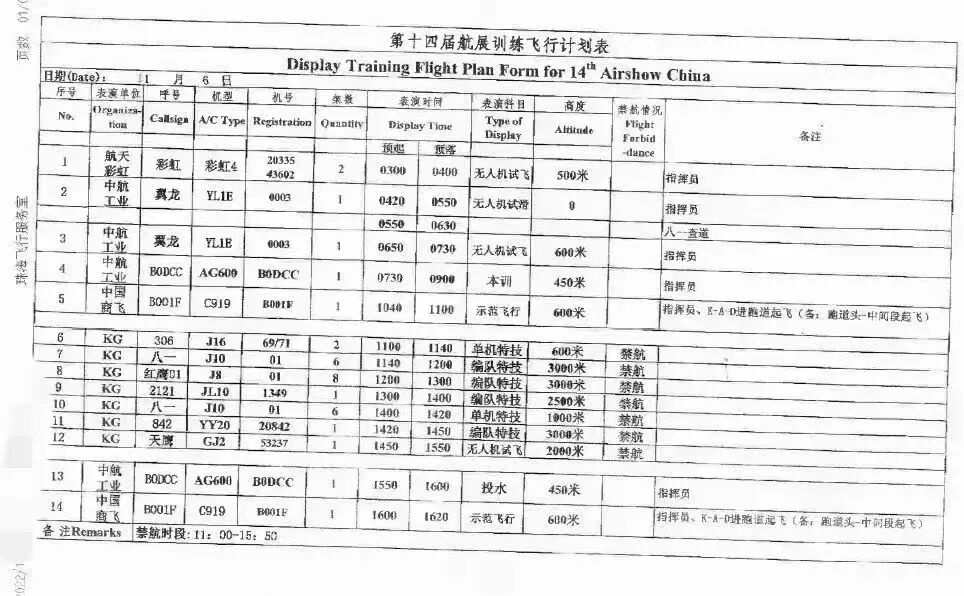 第十四届航展训练飞行计划表
Display Training Flight Plan Form for 14th Airshow China
日期(Date): 11 月 6 日
序号 表演单位 呼号 机型 机号 架数 表演时间 表演科目 高度 禁航情况 备注
No. Organiza-tion Callsign A/C Type Registration Quantity Display Time Type of Display Altitude Flight Forbid-dance
预起 预落
1 航天彩虹 彩虹 彩虹4 20335 43602 2 0300 0400 无人机试飞 500米 指挥员
2 中航工业 翼龙 YL1E 0003 1 0420 0550 无人机试滑 0 指挥员
0550 0630 八一查道
3 中航工业 翼龙 YL1E 0003 1 0650 0730 无人机试飞 600米 指挥员
4 中航工业 B0DCC AG600 B0DCC 1 0730 0900 本训 450米 指挥员
5 中国商飞 B001F C919 B001F 1 1040 1100 示范飞行 600米 指挥员、K-A-D进跑道起飞（备：跑道头-中间段起飞）
6 KG 306 J16 69/71 2 1100 1140 单机特技 600米 禁航
7 KG 八一 J10 01 6 1140 1200 编队特技 3000米 禁航
8 KG 红鹰01 J8 01 8 1200 1300 编队特技 3000米 禁航
9 KG 2121 JL10 1349 1 1300 1400 编队特技 2500米 禁航
10 KG 八一 J10 01 6 1400 1420 单机特技 1000米 禁航
11 KG 842 YY20 20842 1 1420 1450 编队特技 3000米 禁航
12 KG 天鹰 GJ2 53237 1 1450 1550 无人机试飞 2000米 禁航
13 中航工业 B0DCC AG600 B0DCC 1 1550 1600 投水 450米 指挥员
14 中国商飞 B001F C919 B001F 1 1600 1620 示范飞行 600米 指挥员、K-A-D进跑道起飞（备：跑道头-中间段起飞）
备 注Remarks 禁航时段:11：00-15：50
页数 01/0
珠海飞行服务室
2022/1